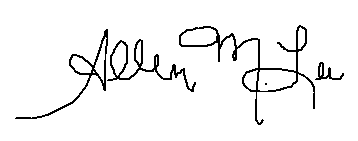 Allen M. Lee